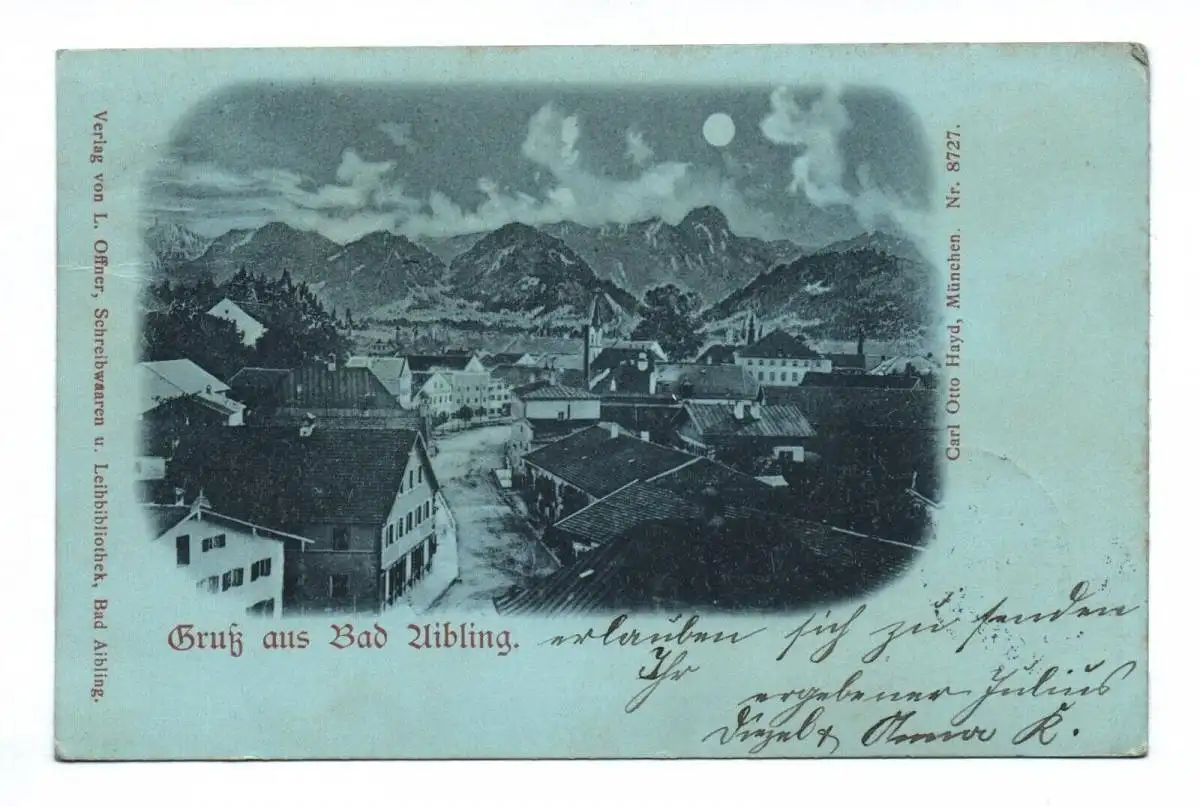 Verlag von L. Offner, Schreibwaaren u. Leihbibliothek, Bad Aibling.
Carl Otto Hayd, München. Nr. 8727.
Gruß aus Bad Aibling. erlauben sich zu senden
Ihr
ergebener Julius
Diezel & Anna K.